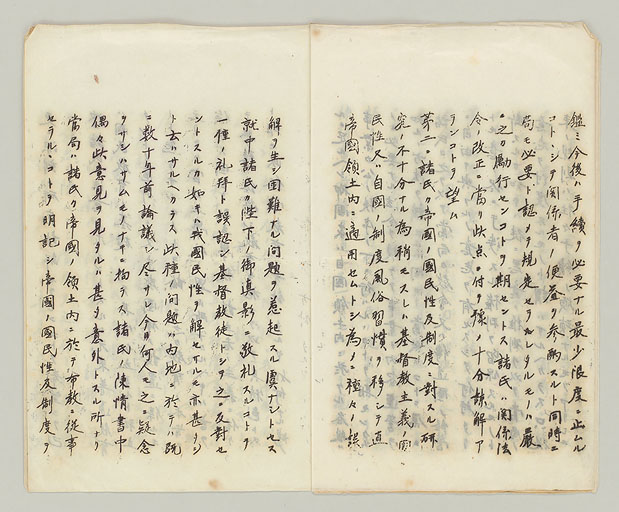 鑑ミ今後ハ手續ヲ必要ナル最少限度ニ止ムル
コトヽシテ関係者ノ便益ヲ参酌スルト同時ニ
局モ必要ト認メテ規定セラレタルモノハ嚴
ニ之カ勵行センコトヲ期セントス諸氏ハ関係法
令ノ改正ニ當リ此点ニ付予ノ十分諒解ア
ランコトヲ望ム
第二ハ諸氏カ帝國ノ國民性及制度ニ對スル研
究ノ不十分ナル為稍モスレハ基督教主義ノ
民性又ハ自國ノ制度風俗習慣ヲ移シテ直
帝國領土内ニ適用セムトシ為メニ種々ノ誤
解ヲ生シ困難ナル問題ヲ惹起スル虞ナシトセス
就中諸氏カ陛下ノ御真影ニ敬礼スルコトヲ
一種ノ礼拝ト誤認シ基督教徒トシテ之ニ反對セ
ントスルカ如キハ我國民性ヲ解セサルモ亦甚シ
ト云ハサルヘカラス此種ノ問題ハ内地ニ於テハ既
ニ数十年前論議シ尽サレ今日何人モ之ニ疑念
ヲサシハサムモノナキニ拘ラス諸氏ノ陳情書中
偶々此意見ヲ見タルハ甚タ意外トスル所ナリ
當局ハ諸氏カ帝國ノ領土内ニ於テ布教ニ従事
セラルヽコトヲ明記シ帝國ノ國民性及制度ヲ